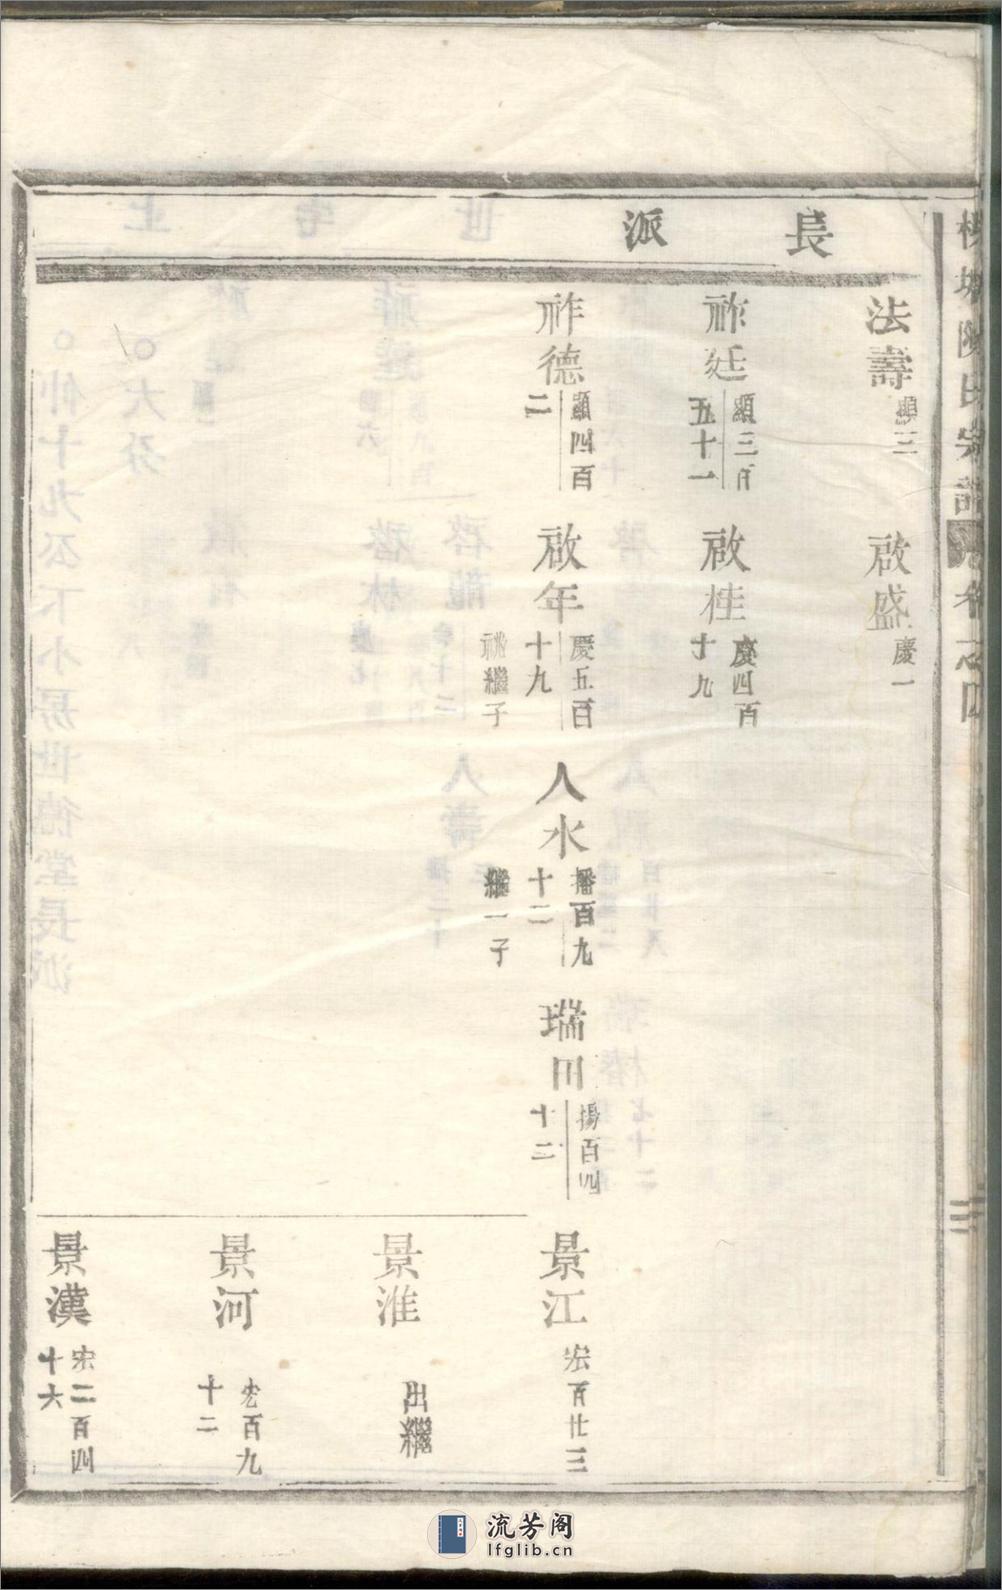 氏宗譜
長派
法壽 顯三
啟盛 慶一
祚廷 顯三百五十一
啟桂 慶四百十九
祚德 顯四百二
啟年 慶五百十九 祧繼子
人水 播百九十二 繼一子
瑞田 揚百四十二
景江 宏百廿三
景淮 出繼
景河 宏百九十二
景漢 宏二百四十六
流芳阁
lfglib.cn